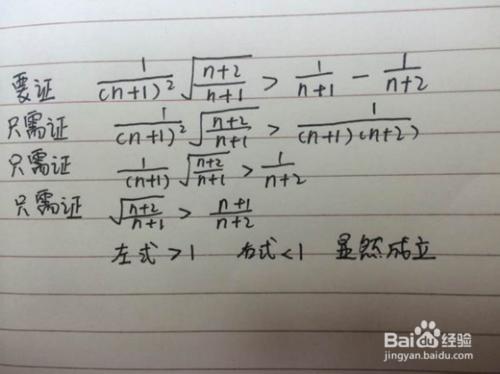 要证 1/(n+1)² √((n+2)/(n+1)) > 1/(n+1) - 1/(n+2)
只需证 1/(n+1)² √((n+2)/(n+1)) > 1/((n+1)(n+2))
只需证 1/(n+1) √((n+2)/(n+1)) > 1/(n+2)
只需证 √((n+2)/(n+1)) > (n+1)/(n+2)
左式>1 右式<1 显然成立
Baidu经验
jingyan.baidu.com